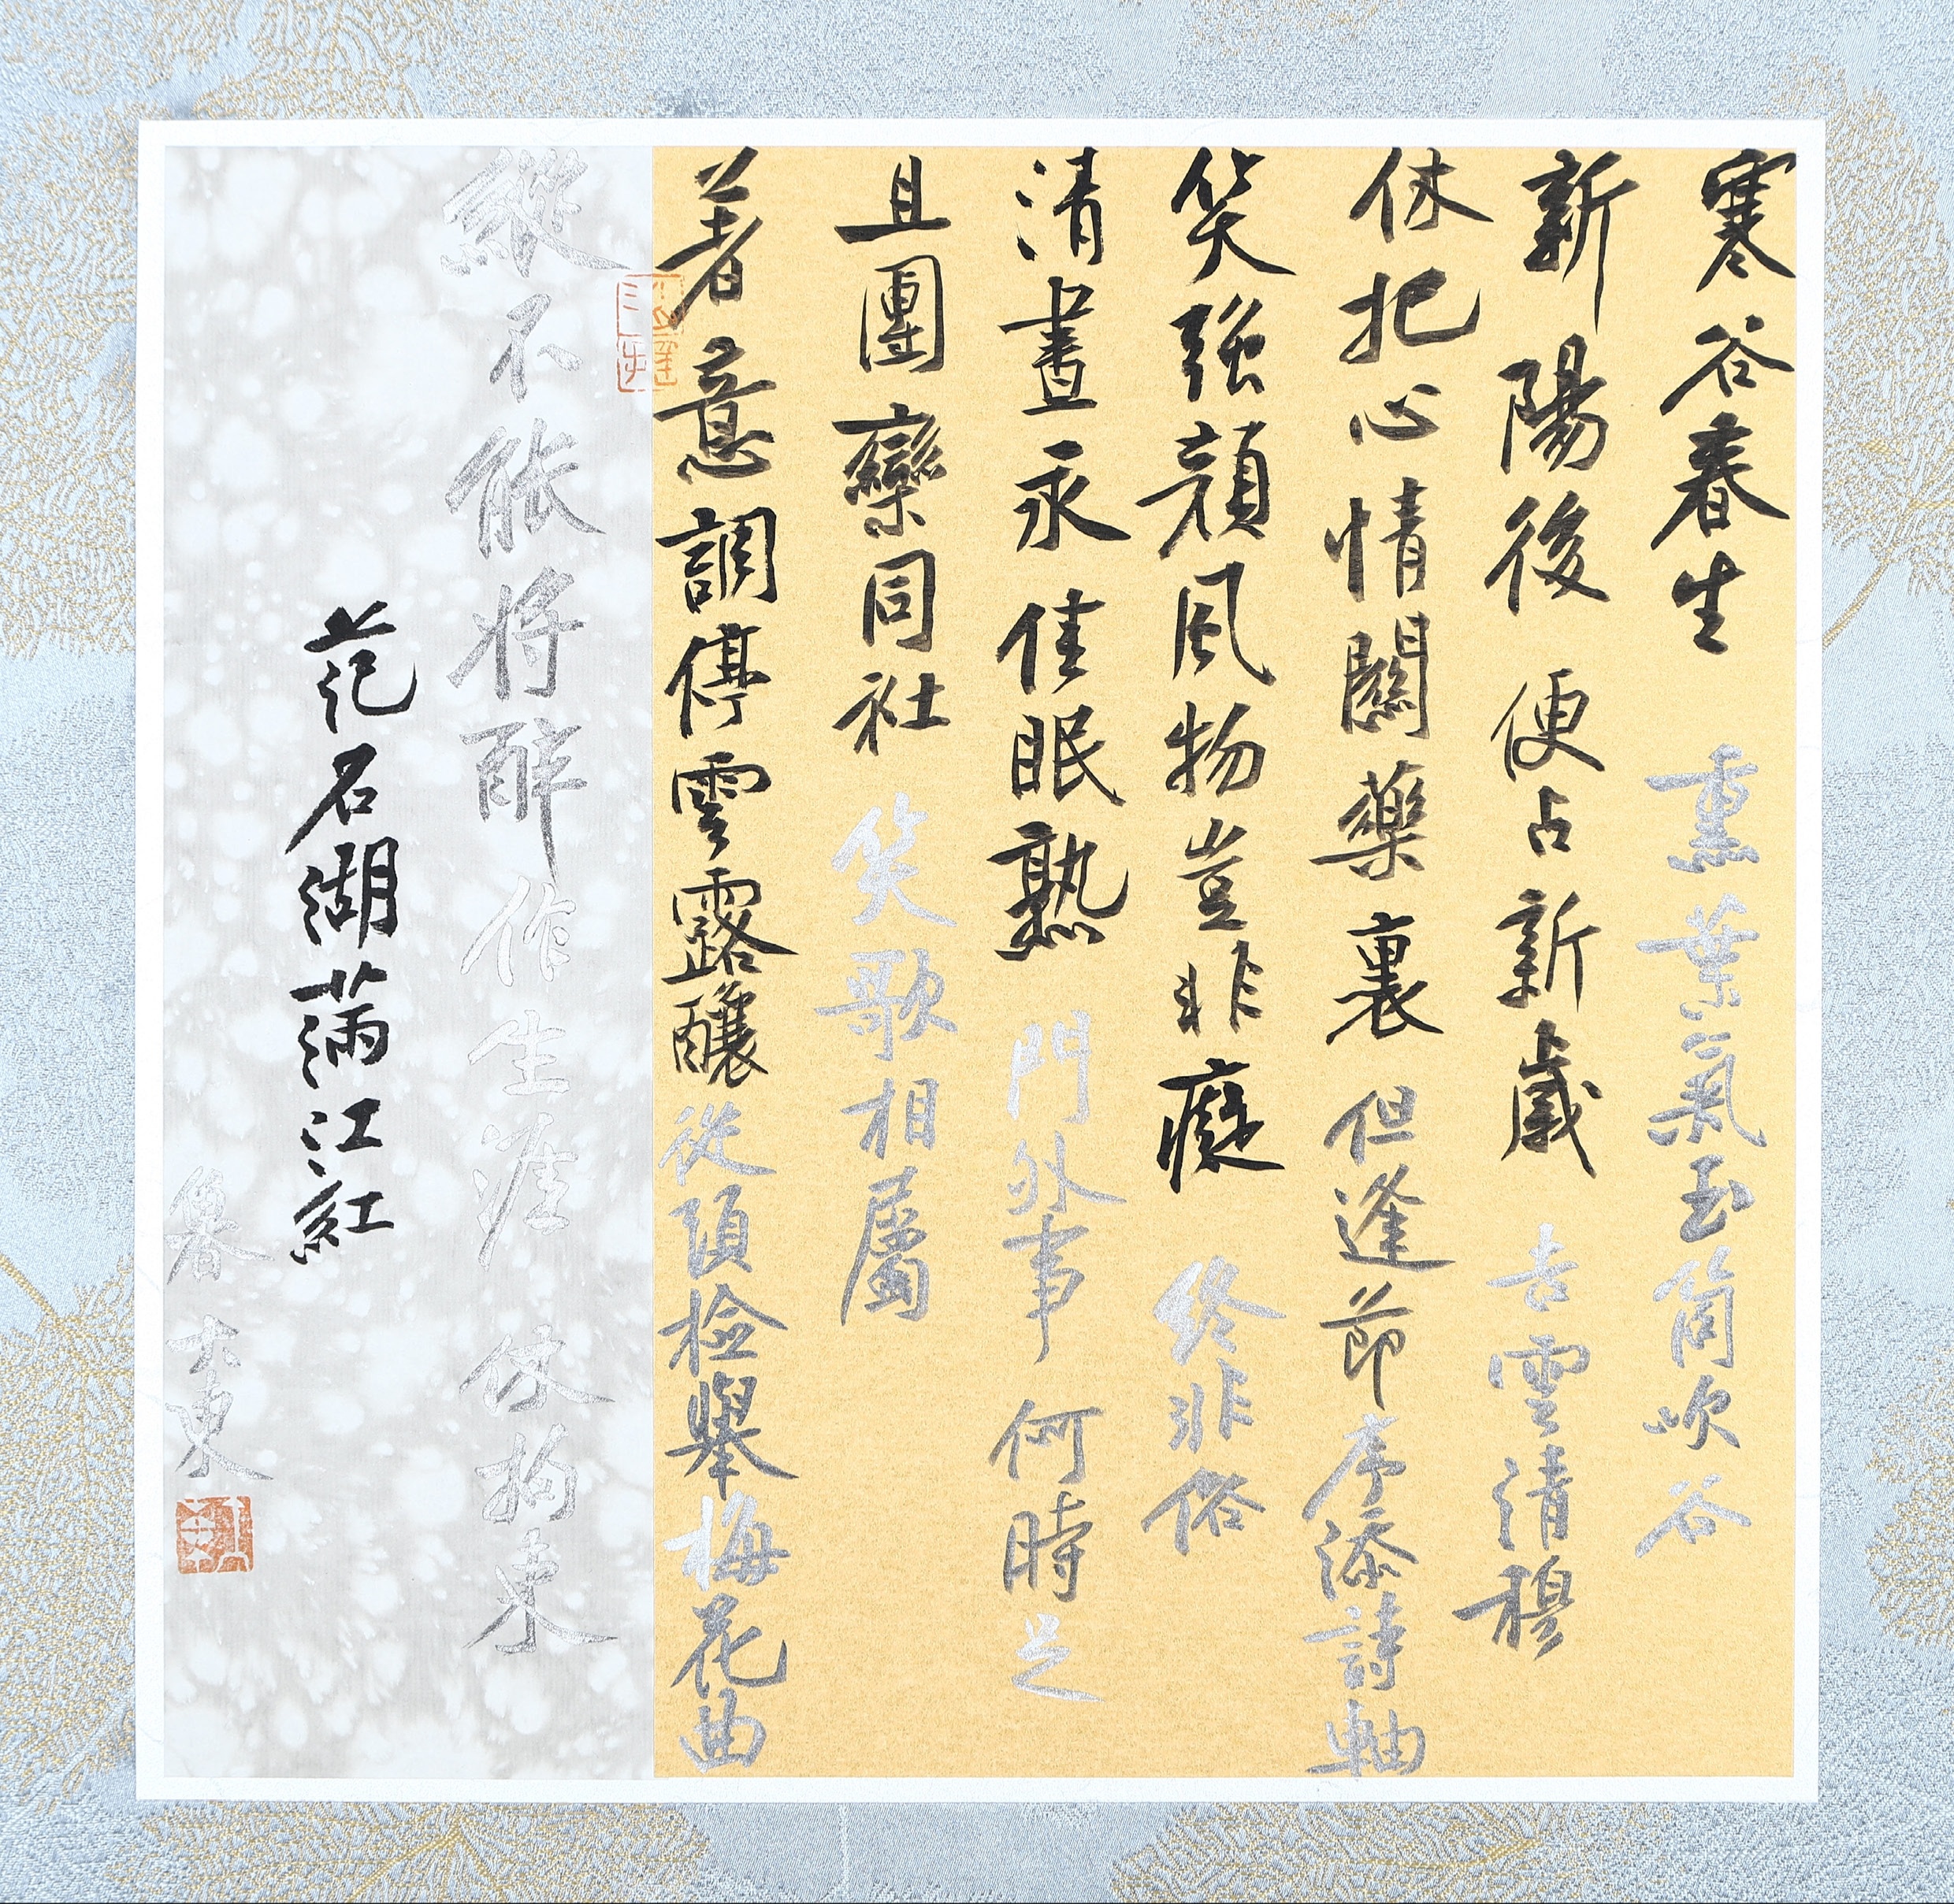 寒谷春生 熏葉氣玉筒吹谷
新陽後 便占新歲 吉雲清穆
休把心情關藥裏 但逢節序添詩軸
笑強顏風物豈非癡 終非俗
清晝永佳眠熟 門外事何時足
且團欒同社 笑歌相屬
著意調停雲露釀 從頭檢舉梅花曲
縱不能將醉作生涯 休拘束
范石湖滿江紅
大東